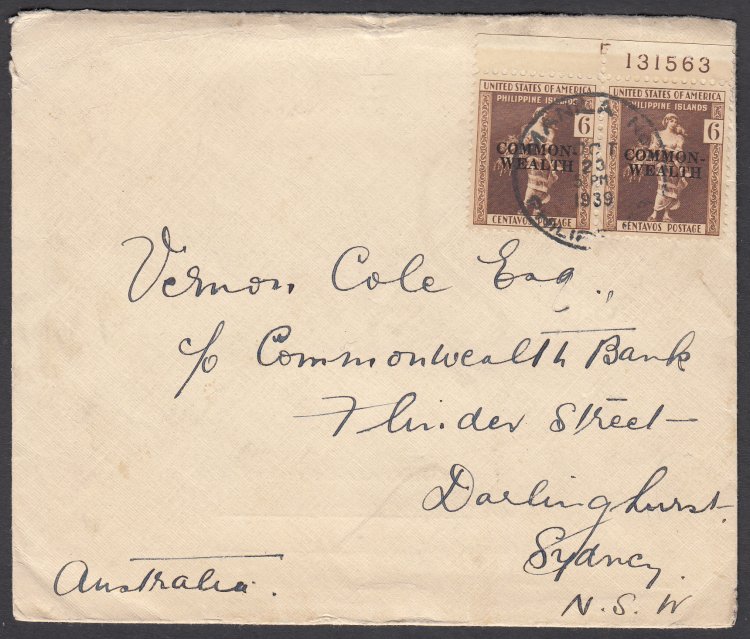 131563
UNITED STATES OF AMERICA
PHILIPPINE ISLANDS
6
COMMON-
WEALTH
CENTAVOS POSTAGE
UNITED STATES OF AMERICA
PHILIPPINE ISLANDS
6
COMMON-
WEALTH
CENTAVOS POSTAGE
MANILA
OCT
23
PM
1939
Vernon Cole Esq.,
c/o Commonwealth Bank
Flinder Street
Darlinghurst
Sydney.
Australia.
N.S.W